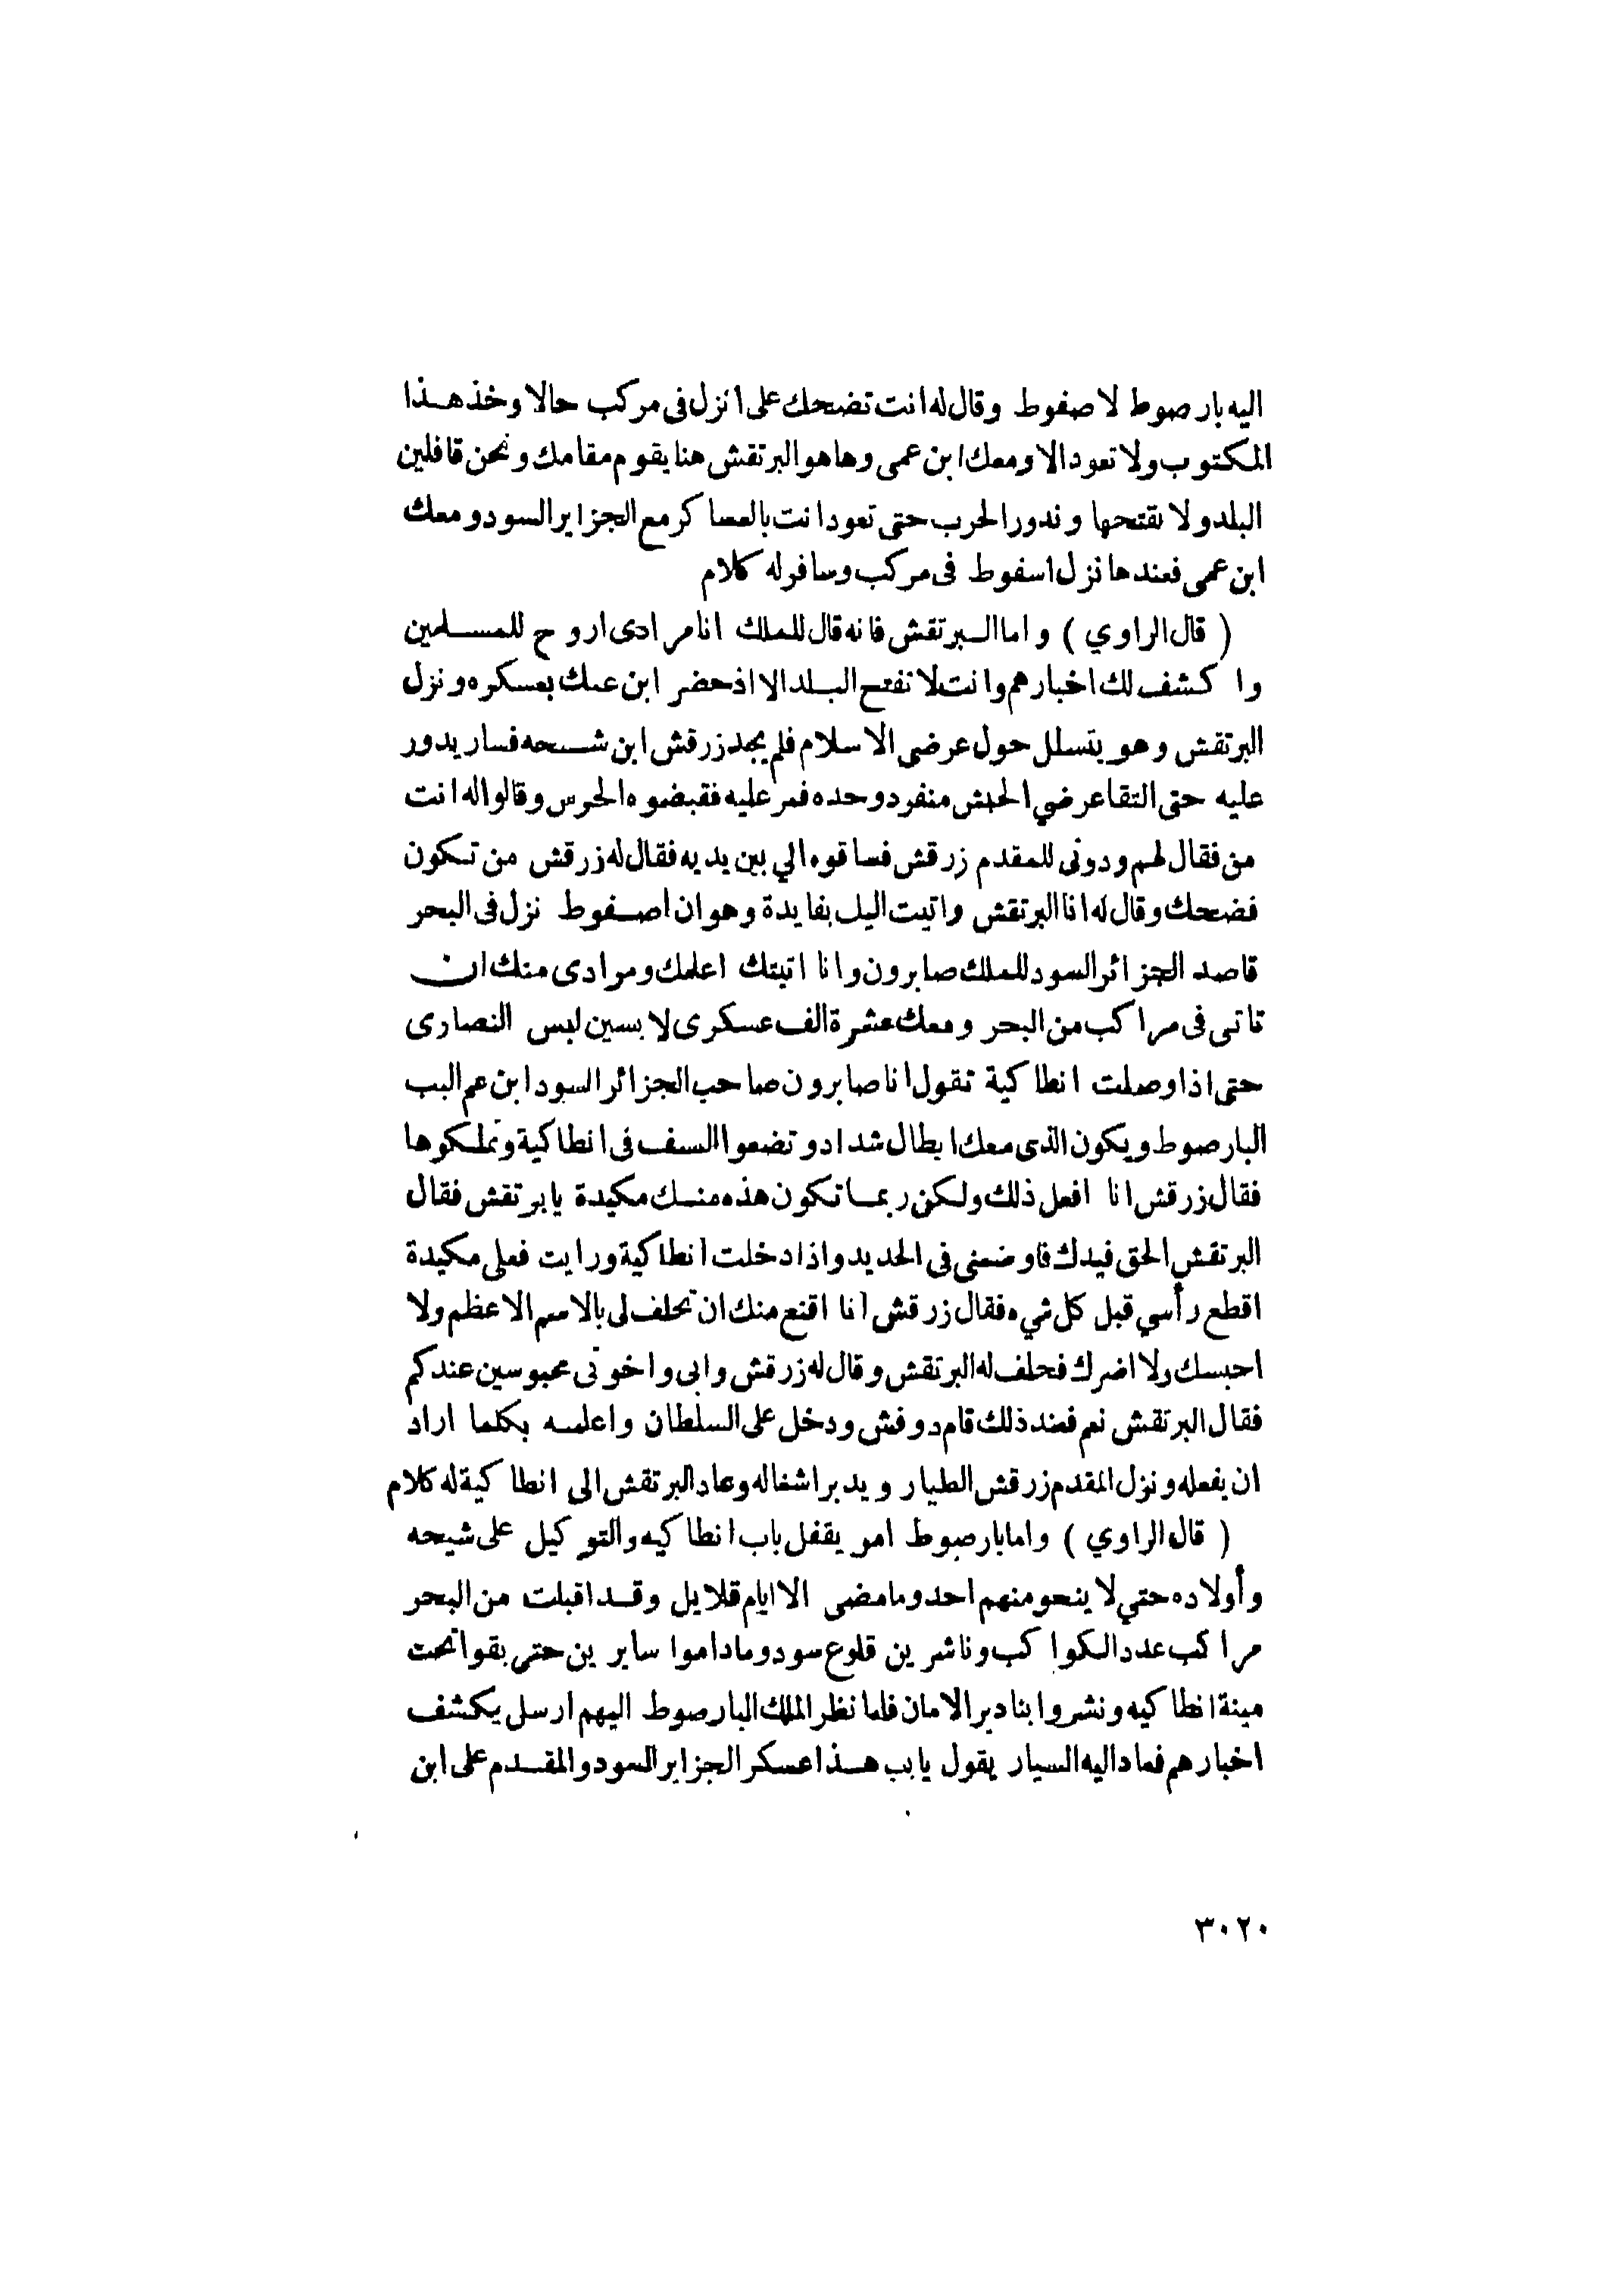 اليه بارصوط لاصفوط وقال له انت تضحك على انزل فى مركب حالا وخذ هذا
المكتوب ولا تعود الا ومعك ابن عمى وها هو البرتقش هنا يقوم مقامك ونحن قافلين
البلد ولا نفتحها وندور الحرب حتى تعود انت بالعساكر مع الجزاير السود ومعك
ابن عمى فعندها نزل اسفوط فى مركب وسافر له كلام
( قال الراوي ) واما البرتقش فانه قال للملك انا مرادى اروح للمسلمين
واكشف لك اخبارهم وانت لا تفتح البلد الا اذ حضر ابن عمك بعسكره ونزل
البرتقش وهو يتسلل حول عرضى الاسلام فلم يجد زرقش ابن شيحه فسار يدور
عليه حتى التقا عرضي الحبش منفرد وحده فمر عليه فقبضوه الحرس وقالوا له انت
من فقال لهم ودونى للمقدم زرقش فساقوه الي بين يديه فقال له زرقش من تكون
فضحك وقال له انا البرتقش واتيت اليك بفايدة وهو ان اصفوط نزل فى البحر
قاصد الجزائر السود للملك صابرون وانا اتيتك اعلمك ومرادى منك ان
تاتى فى مراكب من البحر ومعك عشرة الف عسكرى لابسين لبس النصارى
حتى اذا وصلت انطاكية تقول انا صابرون صاحب الجزائر السود ابن عم البب
البارصوط ويكون الذى معك ابطال شداد وتضعوا السف فى انطاكية وتملكوها
فقال زرقش انا افعل ذلك ولكن ربما تكون هذه منك مكيدة يا برتقش فقال
البرتقش الحق فيدك قاوضعنى فى الحديد واذا دخلت انطاكية ورايت فعلى مكيدة
اقطع رأسي قبل كل شيء فقال زرقش انا اقنع منك ان تحلف لى بالاسم الاعظم ولا
احبسك ولا اضرك فحلف له البرتقش وقال له زرقش وابى واخوتى محبوسين عندكم
فقال البرتقش نعم فعند ذلك قام دوفش ودخل على السلطان واعلمه بكلما اراد
ان يفعله ونزل المقدم زرقش الطيار ويدبر اشغاله وعاد البرتقش الى انطاكية له كلام
( قال الراوي ) واما بارصوط امر يقفل باب انطاكيه والتوكيل على شيحه
وأولاده حتي لا ينحو منهم احد وما مضى الا ايام قلايل وقد اقبلت من البحر
مراكب عدد الكواكب وناشرين قلوع سود وما داموا سايرين حتى بقوا تحت
مينة انطاكيه ونشروا بنادير الامان فلما نظر الملك البارصوط اليهم ارسل يكشف
اخبارهم فعاد اليه السيار يقول يا بب هذا عسكر الجزاير السود والمقدم على ابن
٣٠٢٠